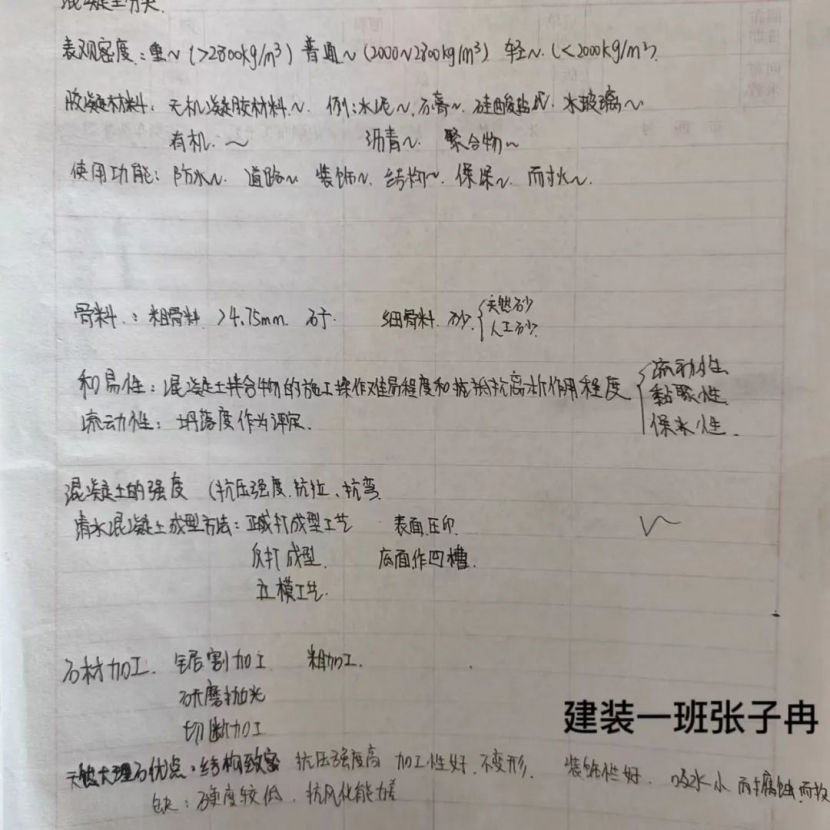 混凝土分类.
表观密度：重~（>2800kg/m³）普通~（2000~2800kg/m³）轻~（<2000kg/m³）.
胶凝材料：无机凝胶材料~. 例：水泥~、石膏~. 硅酸盐~. 水玻璃~
有机. ~ 沥青~. 聚合物~
使用功能：防水~. 道路~ 装饰~. 结构~. 保~. 而~.
骨料：粗骨料 >4.75mm. 石子. 细骨料. 砂. {天然砂
人工砂.
和易性：混凝土拌合物的施工操作难易程度和抵抗离析作用程度 {流动性
黏聚性.
保水性.
流动性：坍落度作为评定.
混凝土的强度 （抗压强度. 抗拉、抗弯.
清水混凝土成型方法：正打成型工艺 表面压印.
反打成型. 底面作凹槽.
立模工艺.
石材加工. 锯割加工 粗加工.
研磨抛光
切断加工
建装一班张子冉
天然大理石优点：结构致密 抗压强度高 加工性好. 不变形. 装饰性好. 吸水小. 耐腐蚀. 耐
缺：强度较低. 抗风化能力差